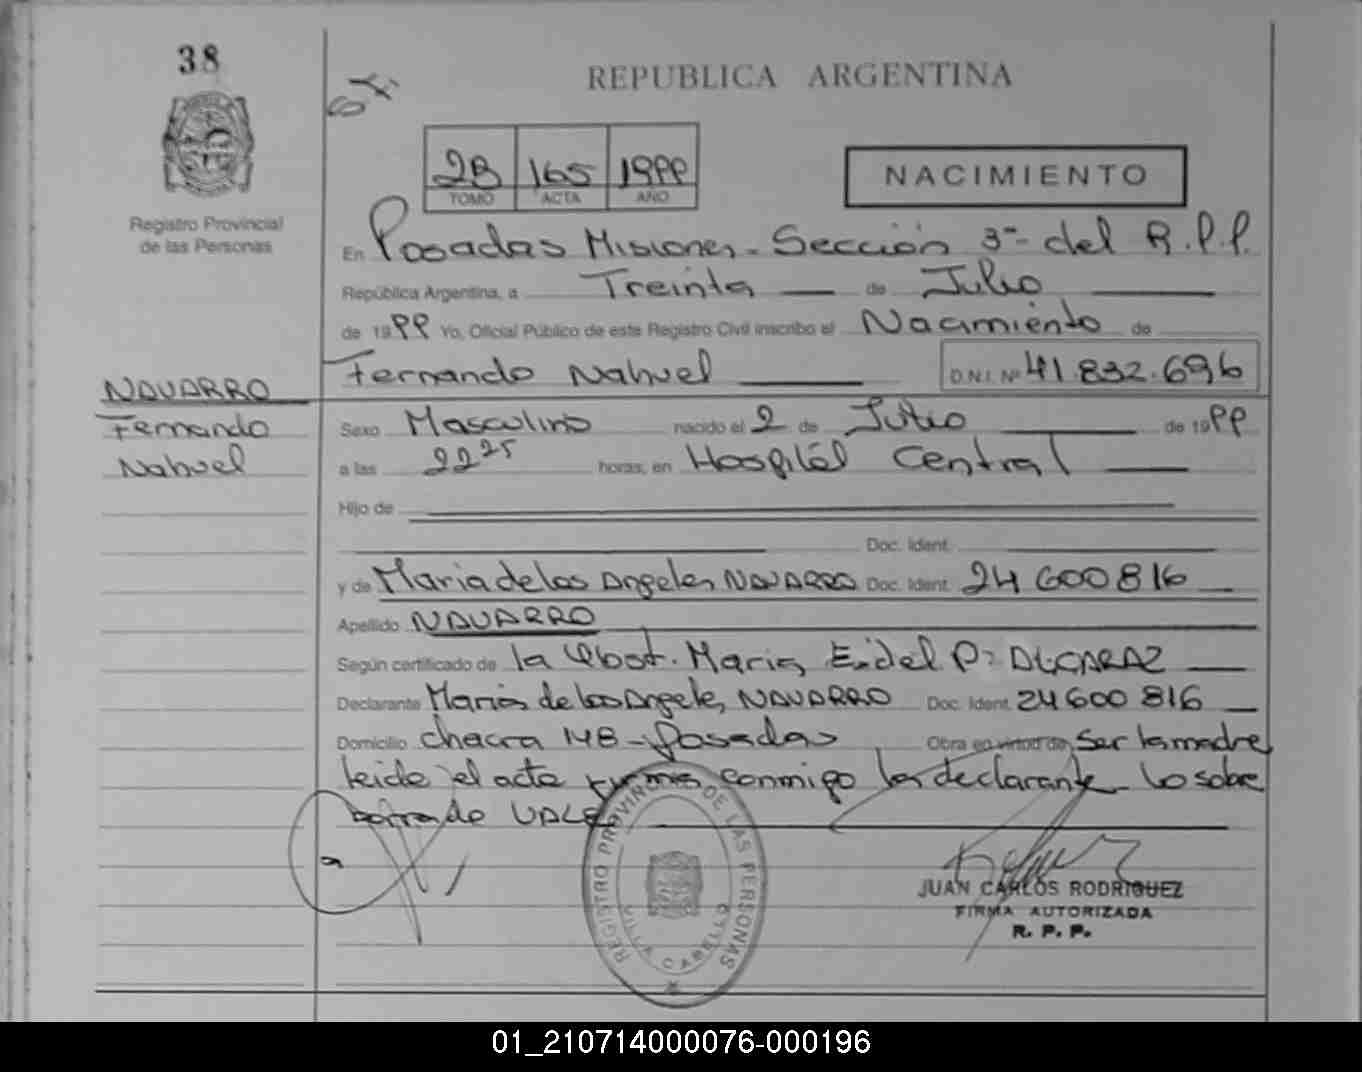 38
REPUBLICA ARGENTINA
2B 165 1999
TOMO ACTA AÑO
NACIMIENTO
Registro Provincial
de las Personas
En Posadas Misiones - Sección 3ª del R.P.P.
República Argentina, a Treinta de Julio
de 1999 Yo, Oficial Público de este Registro Civil inscribo el Nacimiento de
Fernando Nahuel D.N.I. Nº 41.832.696
NAVARRO
Fernando
Nahuel
Sexo Masculino nacido el 2 de Julio de 1999
a las 22 25 horas, en Hospital Central
Hijo de
Doc. Ident.
y de Maria de los Angeles NAVARRO Doc. Ident. 24 600 816
Apellido NAVARRO
Según certificado de la Obst. Maria E. del P. ALCARAZ
Declarante Maria de los Angeles NAVARRO Doc. Ident. 24 600 816
Domicilio chacra 148 - Posadas Obra en virtud de ser la madre
leida el acta firma conmigo la declarante Lo sobre
borrado VALE
REGISTRO PROVINCIAL DE LAS PERSONAS
VILLA CABELLO
JUAN CARLOS RODRIGUEZ
FIRMA AUTORIZADA
R. P. P.
01_210714000076-000196